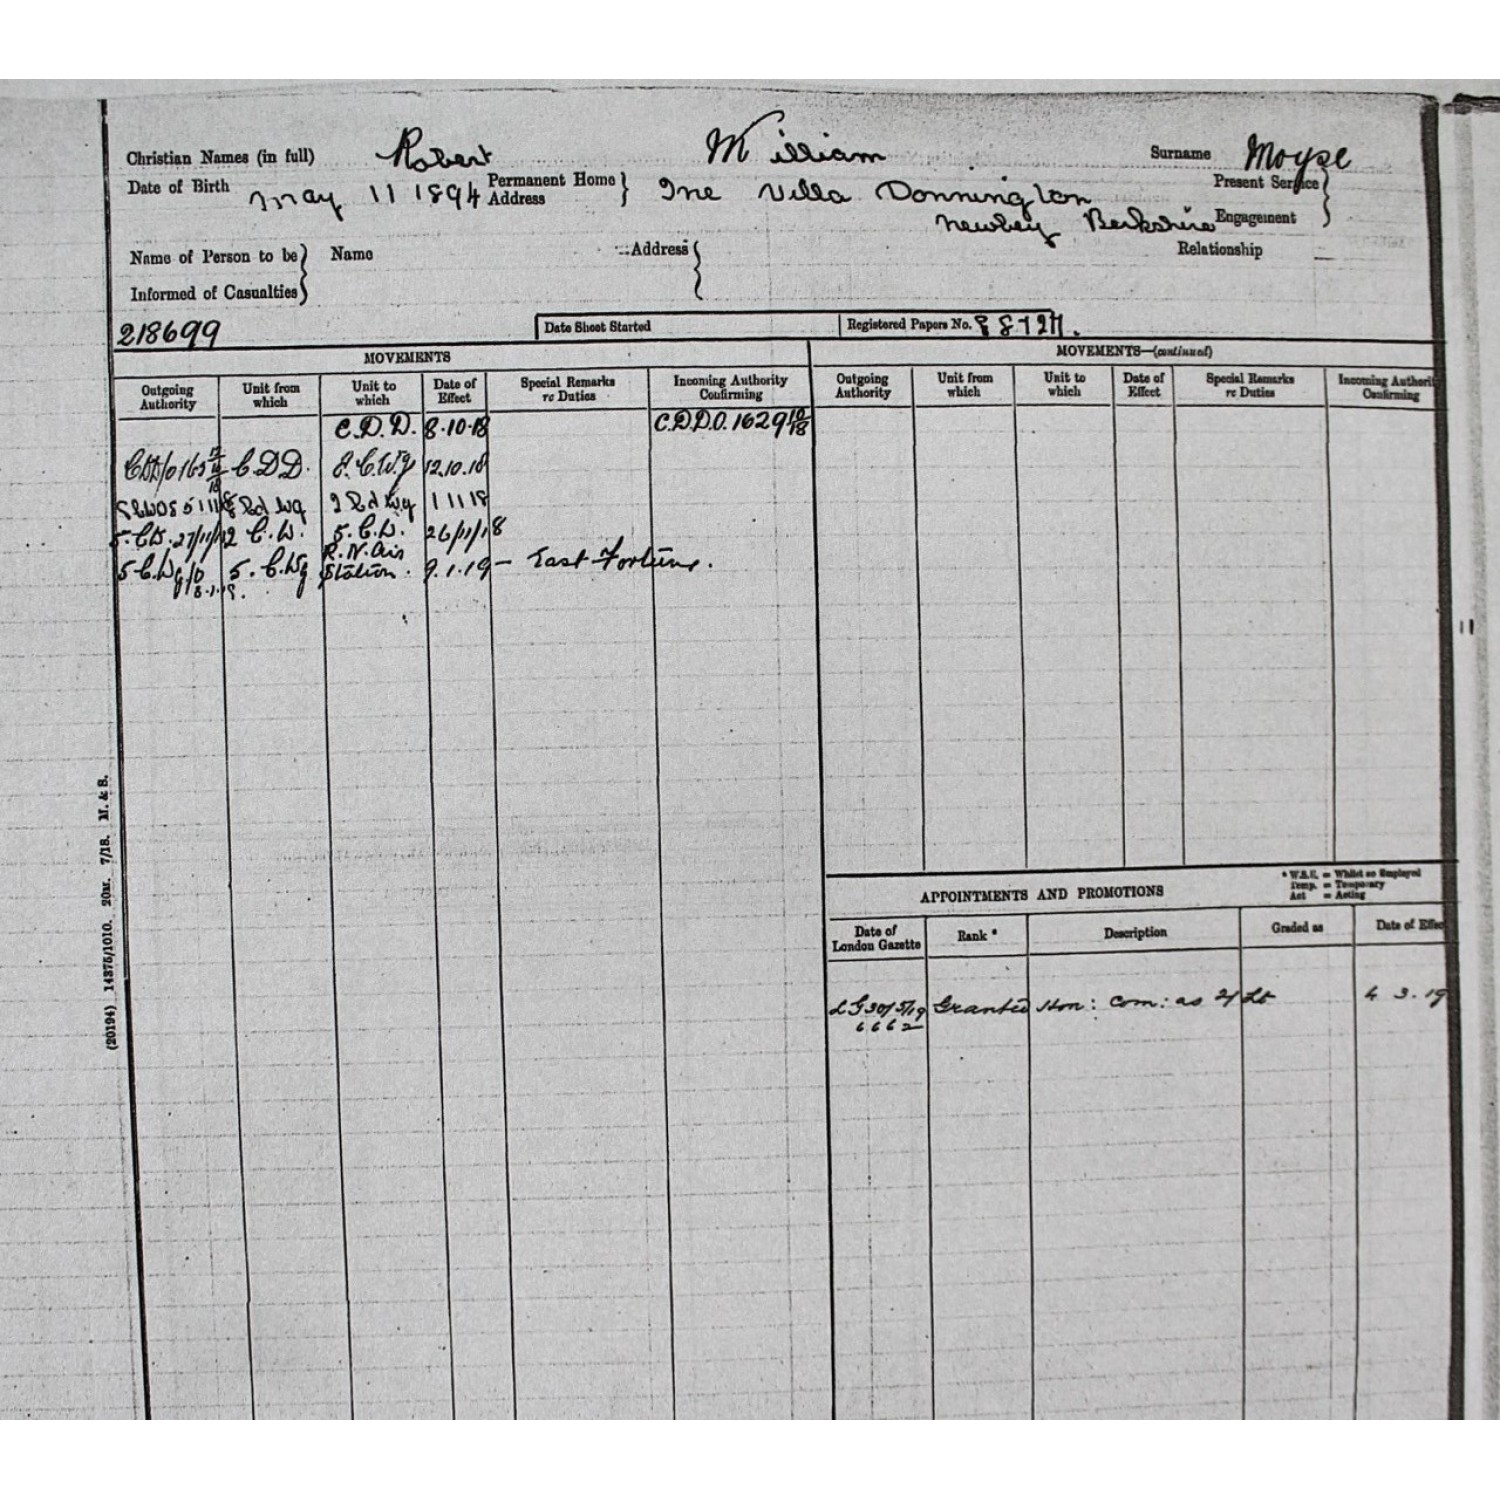 Christian Names (in full) Robert William Surname Moyse
Date of Birth May 11 1894 Permanent Home Address } Ine Villa Donnington Present Service }
Newbey Berkshire Engagement
Name of Person to be Informed of Casualties } Name Address { Relationship
218699 Date Sheet Started Registered Papers No.
MOVEMENTS MOVEMENTS—(continued)
Outgoing Authority Unit from which Unit to which Date of Effect Special Remarks re Duties Incoming Authority Confirming Outgoing Authority Unit from which Unit to which Date of Effect Special Remarks re Duties Incoming Authority Confirming
C.D.D. 8.10.18 C.D.D.O. 1629 10/18
C.D.D. 12.10.18
1 11 18
27/11/ C.W. 5.C.W. 26/11/18
5 C.Wg/o 8.1.19. 5. C.Wg R.N. Air Station. 9.1.19 – East Fortune.
APPOINTMENTS AND PROMOTIONS
* W.S.E. = Whilst so Employed
Temp. = Temporary
Act = Acting
Date of London Gazette Rank * Description Graded as Date of Effec
LG 30/5/19 Granted Hon: Com: as 2/Lt 4 3.19
6662
(20194) 14375/1010. 20M. 7/18. M. & S.
11